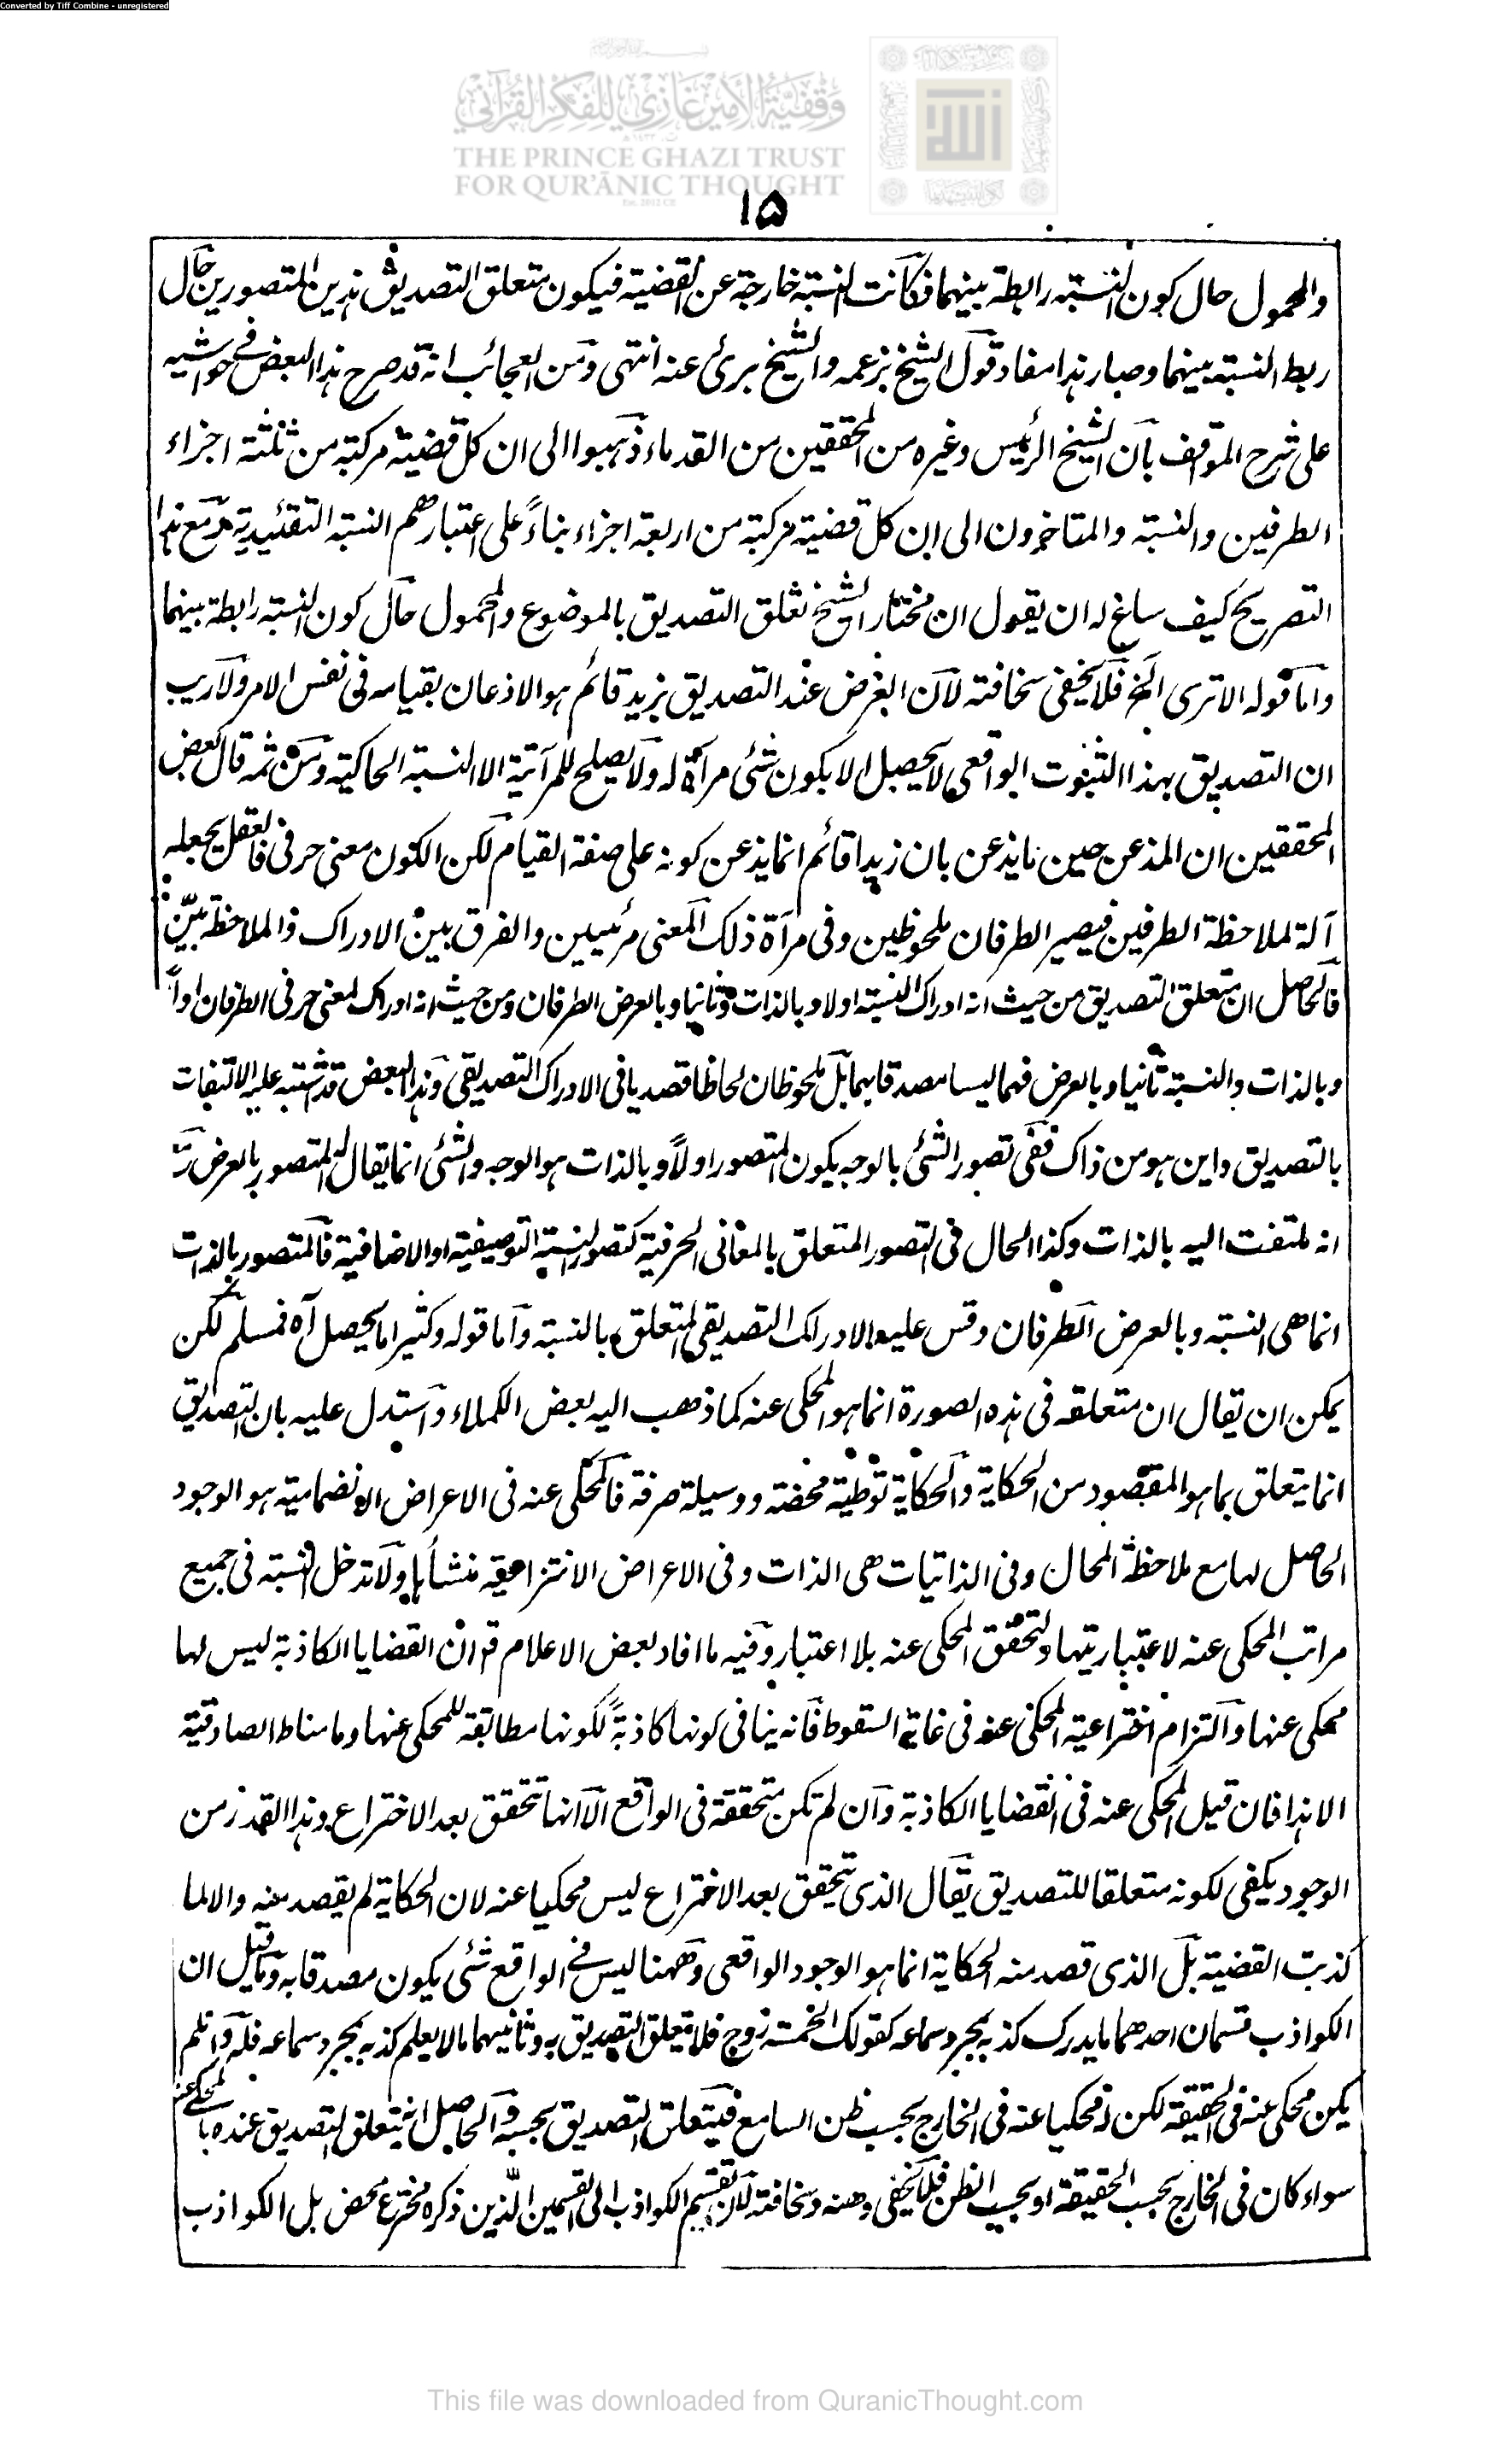 Converted by Tiff Combine - unregistered
وقفية الأمير غازي للفكر القرآني
THE PRINCE GHAZI TRUST
FOR QUR'ĀNIC THOUGHT
Est. 2012 CE
۱۵
والمحمول حال كون النسبة رابطة بينهما فكانت النسبة خارجة عن القضية فيكون متعلق التصديق هذين المتصورين حال
ربط النسبة بينهما وصار هذا مفاد قول الشيخ بزعمه والشيخ برئ عنه انتهى ومن العجائب انه قد صرح هذا البعض في حواشيه
على شرح المواقف بأن الشيخ الرئيس وغيره من المحققين من القدماء ذهبوا الى ان كل قضية مركبة من ثلثة اجزاء
الطرفين والنسبة والمتاخرون الى ان كل قضية مركبة من اربعة اجزاء بناءً على اعتبارهم النسبة التقئيدية ومع هذا
التصريح كيف ساغ له ان يقول ان مختار الشيخ تعلق التصديق بالموضوع والمحمول حال كون النسبة رابطة بينهما
واما قوله الا ترى الخ فلا يخفى سخافته لان الغرض عند التصديق بزيد قائم هو الاذعان بقيامه فى نفس الامر ولا ريب
ان التصديق بهذا الثبوت الواقعى لا يحصل الا بكون شئى مرآة له ولا يصلح للمرآتية الا النسبة الحاكية ومن ثمه قال بعض
المحققين ان المذعن حين ما يذعن بان زيدا قائم انما يذعن كونه على صفة القيام لكن الكون معنى حرفى فالعقل يجعله
آلة لملاحظة الطرفين فيصير الطرفان ملحوظين وفى مرآة ذلك المعنى مرئيين والفرق بين الادراك والملاحظة بيّن
فالحاصل ان متعلق التصديق من حيث انه ادراك النسبة اولا وبالذات وثانيا وبالعرض الطرفان ومن حيث انه ادراك لمعنى حرفى الطرفان اولاً
وبالذات والنسبة ثانيا وبالعرض فهما ليسا مصدقا بهما بل ملحوظان لحاظا قصديا فى الادراك التصديقى وهذا البعض قد اشتبه عليه الالتفات
بالتصديق واين هو من ذاك ففى تصور الشئى بالوجه يكون المتصور اولاً وبالذات هو الوجه والشئى انما يقال له المتصور بالعرض مع
انه ملتفت اليه بالذات وكذا الحال فى التصور المتعلق بالمعانى الحرفية كتصور النسبة التوصيفية او الاضافية فالمتصور بالذات
انما هى النسبة وبالعرض الطرفان وقس عليه الادراك التصديقى المتعلق بالنسبة واما قوله وكثيرا ما يحصل آه فمسلم لكن
يمكن ان يقال ان متعلقه فى هذه الصورة انما هو المحكى عنه كما ذهب اليه بعض الكملاء واستدل عليه بان التصديق
انما يتعلق بما هو المقصود من الحكاية والحكاية توطية محضة ووسيلة صرفة فالمحكى عنه فى الاعراض الانضمامية هو الوجود
الحاصل لها مع ملاحظة المحال وفى الذاتيات هى الذات وفى الاعراض الانتزاعية منشأها ولا تدخل النسبة فى جميع
مراتب المحكى عنه لاعتباريتها ولتحقق المحكى عنه بلا اعتبار وفيه ما افاد بعض الاعلام قه ان القضايا الكاذبة ليس لها
محكى عنها والتزام اختراعية المحكى عنه فى غاية السقوط فانه ينافى كونها كاذبةً لكونها مطابقة للمحكى عنها وما مناط الصادقية
الا هذا فان قيل المحكى عنه فى القضايا الكاذبة وان لم تكن متحققة فى الواقع الا انها تتحقق بعد الاختراع وهذا القدر من
الوجود يكفى لكونه متعلقا للتصديق يقال الذى يتحقق بعد الاختراع ليس محكيا عنه لان الحكاية لم يقصد منه والا لما
كذبت القضية بل الذى قصد منه الحكاية انما هو الوجود الواقعى وههنا ليس فى الواقع شئى يكون مصدقا به وما قيل ان
الكواذب قسمان احدهما ما يدرك كذبه بمجرد سماعه كقولك الخمسة زوج فلا يتعلق التصديق به وثانيهما ما لا يعلم كذبه بمجرد سماعه فله وان لم
يكن محكى عنه فى الحقيقة لكن له محكيا عنه فى الخارج بحسب ظن السامع فيتعلق التصديق بحسبه والحاصل انه يتعلق التصديق عنده بالمحكى عنه
سواء كان فى الخارج بحسب الحقيقة او بحسب الظن فلا يخفى وهنه وسخافته لان تقسيم الكواذب الى القسمين الذين ذكره مخترع محض بل الكواذب
This file was downloaded from QuranicThought.com